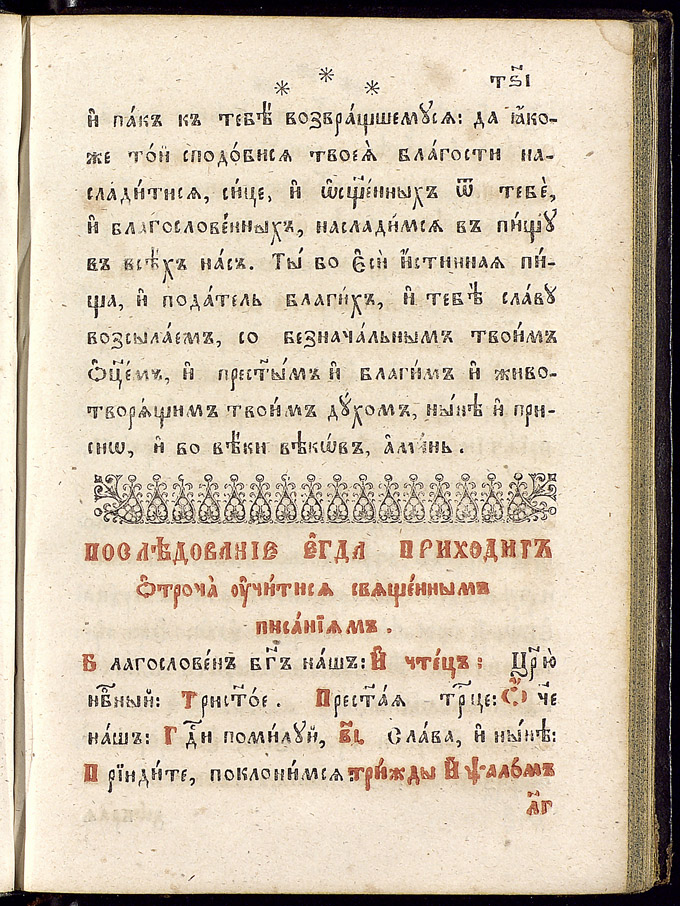 * * * тѕ҃і
и҆ па́къ къ тебѣ̀ возвра́щшемуся: да ꙗ҆́ко-
же то́й сподо́бися твоея̀ бла́гости на-
слади́тися, си́це, и҆ ѡ҆сщ҃е́нныхъ ѿ тебѐ,
и҆ благослове́нныхъ, наслади́мся въ пи́щꙋ
въ всѣ́хъ на́съ. Ты́ бо є҆сѝ и҆́стинная пи́-
ща, и҆ пода́тель благи́хъ, и҆ тебѣ̀ сла́вꙋ
возсыла́емъ, со безнача́льнымъ твои́мъ
Ѻ҆ц҃е́мъ, и҆ прест҃ы́мъ и҆ благи́мъ и҆ живо-
творя́щимъ твои́мъ дꙋ́хомъ, ны́нѣ и҆ при-
снѡ, и҆ во вѣ́ки вѣкѡ́въ, а҆ми́нь.
ПОСЛѢДОВАНІЕ Є҆ГДА ПРИХОДИТЪ
Ѻ҆троча̀ ᲂу҆чи́тися свяще́ннымъ
писа́нїямъ.
Благослове́нъ бг҃ъ на́шъ: И҆ чте́цъ: Цр҃ю́
нб҃ный: Трист҃о́е. Прест҃а́я тр҃це: Ѻ҆́ч҃е
на́шъ: Гд҃и поми́лꙋй, в҃і. Сла́ва, и҆ ны́нѣ:
Прїиди́те, поклони́мся три́жды И҆ ѱало́мъ
л҃г